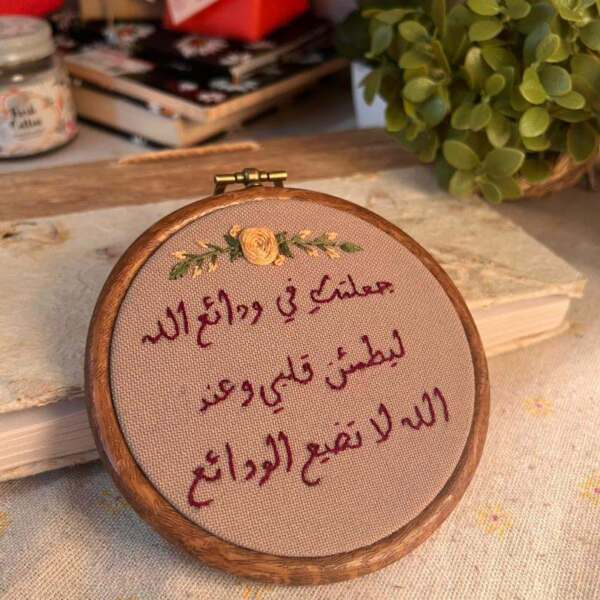 جعلتكِ في ودائع الله
ليطمئن قلبي وعند
الله لا تضيع الودائع